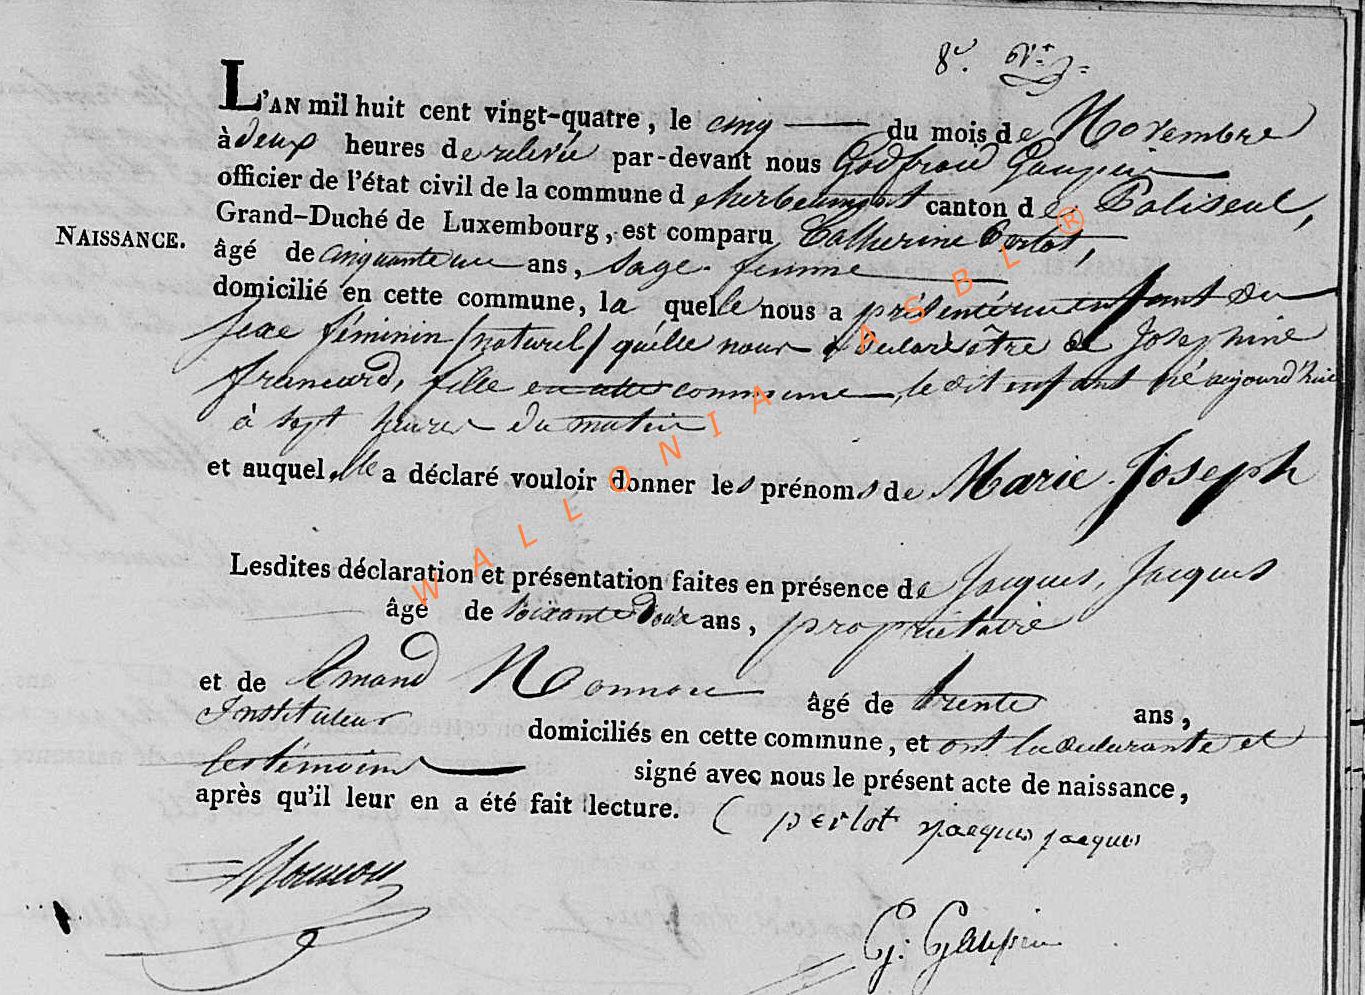 8e.
L'AN mil huit cent vingt-quatre, le cinq du mois de Novembre
à deux heures de relevée par-devant nous Godfroid Gaupin
officier de l'état civil de la commune d'herbeumont canton de Paliseul,
Grand-Duché de Luxembourg, est comparu Catherine Perlot,
NAISSANCE.
âgé de cinquante un ans, sage-femme
domicilié en cette commune, laquelle nous a présenté un enfant du
sexe féminin (naturel) qu'elle nous a déclaré être de Josephine
francard, fille en cette commune, le dit enfant né aujourd'hui
à sept heures du matin
et auquel elle a déclaré vouloir donner les prénoms de Marie Joseph
Lesdites déclaration et présentation faites en présence de Jacques, Jacques
âgé de soixante douze ans, propriétaire
et de Emand Nonnon âgé de trente ans,
Instituteur domiciliés en cette commune, et ont la déclarante et
les témoins signé avec nous le présent acte de naissance,
après qu'il leur en a été fait lecture. C perlot jacques jacques
Nonnon
G: Gaupin
WALLONIA ASBL ®